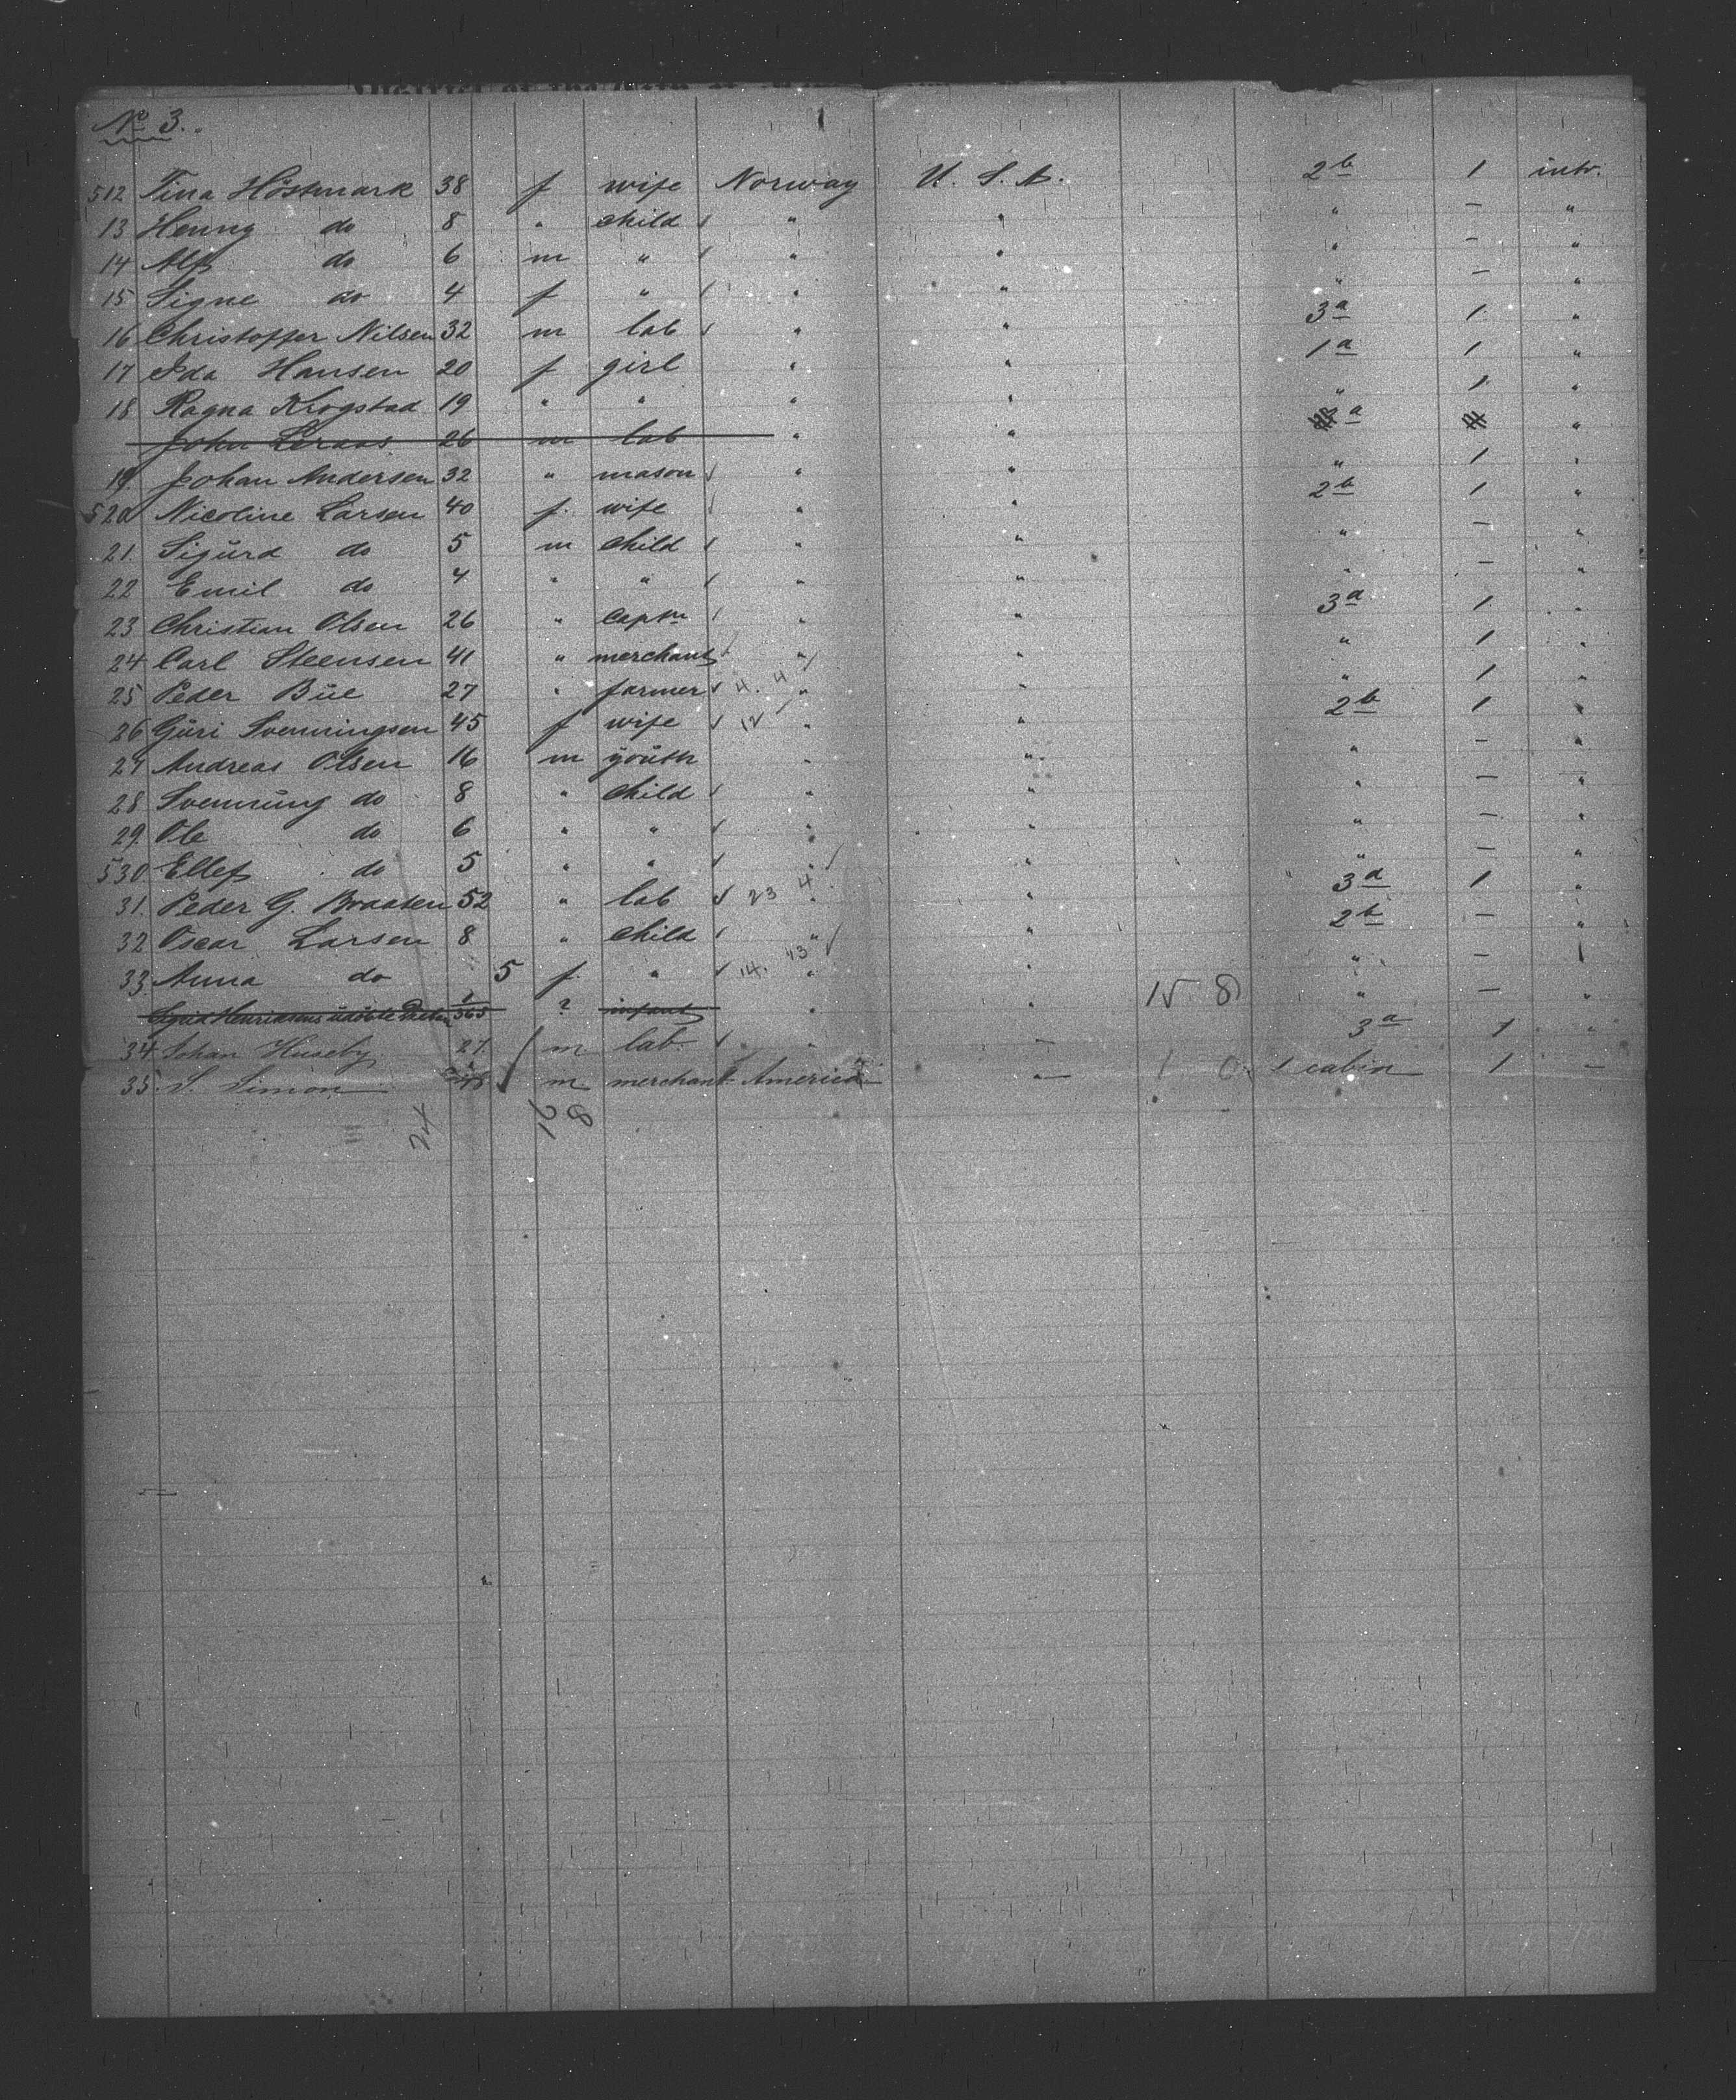 No 3.
512 Tina Höstmark 38 f wife Norway U. S. A. 2b 1 intr.
13 Henny do 8 " child " " " — "
14 Alf do 6 m " " " " — "
15 Signe do 4 f " " " " — "
16 Christoffer Nilsen 32 m lab " " 3a 1 "
17 Ida Hansen 20 f girl " " 1a 1 "
18 Ragna Krogstad 19 " " " " " 1 "
John Leraas 26 m lab " " a "
19. Johan Andersen 32 " mason " " " 1 "
520 Nicoline Larsen 40 f. wife " " 2b 1 "
21. Sigurd do 5 m child " " " — "
22 Emil do 4 " " " " " — "
23 Christian Olsen 26 " captn " " 3a 1 "
24 Carl Steensen 41 " merchant " " " 1 "
25 Peder Büe 27 " farmer 4. 4 " " " 1 "
26 Güri Svenningsen 45 f wife 12 " " 2b 1 "
27 Andreas Olsen 16 m youth " " " — "
28 Svennüng do 8 " child " " " — "
29. Ole do 6 " " " " " — "
530 Ellef do 5 " " " " " — "
31. Peder G. Braaten 52 " lab 23 4 " " 3a 1 "
32 Oscar Larsen 8 " child " " 2b — "
33. Anna do 5 f. " 14. 13 " " " —
Sigrid Henriksens 365 ? infant " " 15 8 " — "
34 Johan Huseby 27. m lab. " — 3a 1 "
35. S. Simon m merchant America " — 1 0 1 cabin 1 —
24 21 8